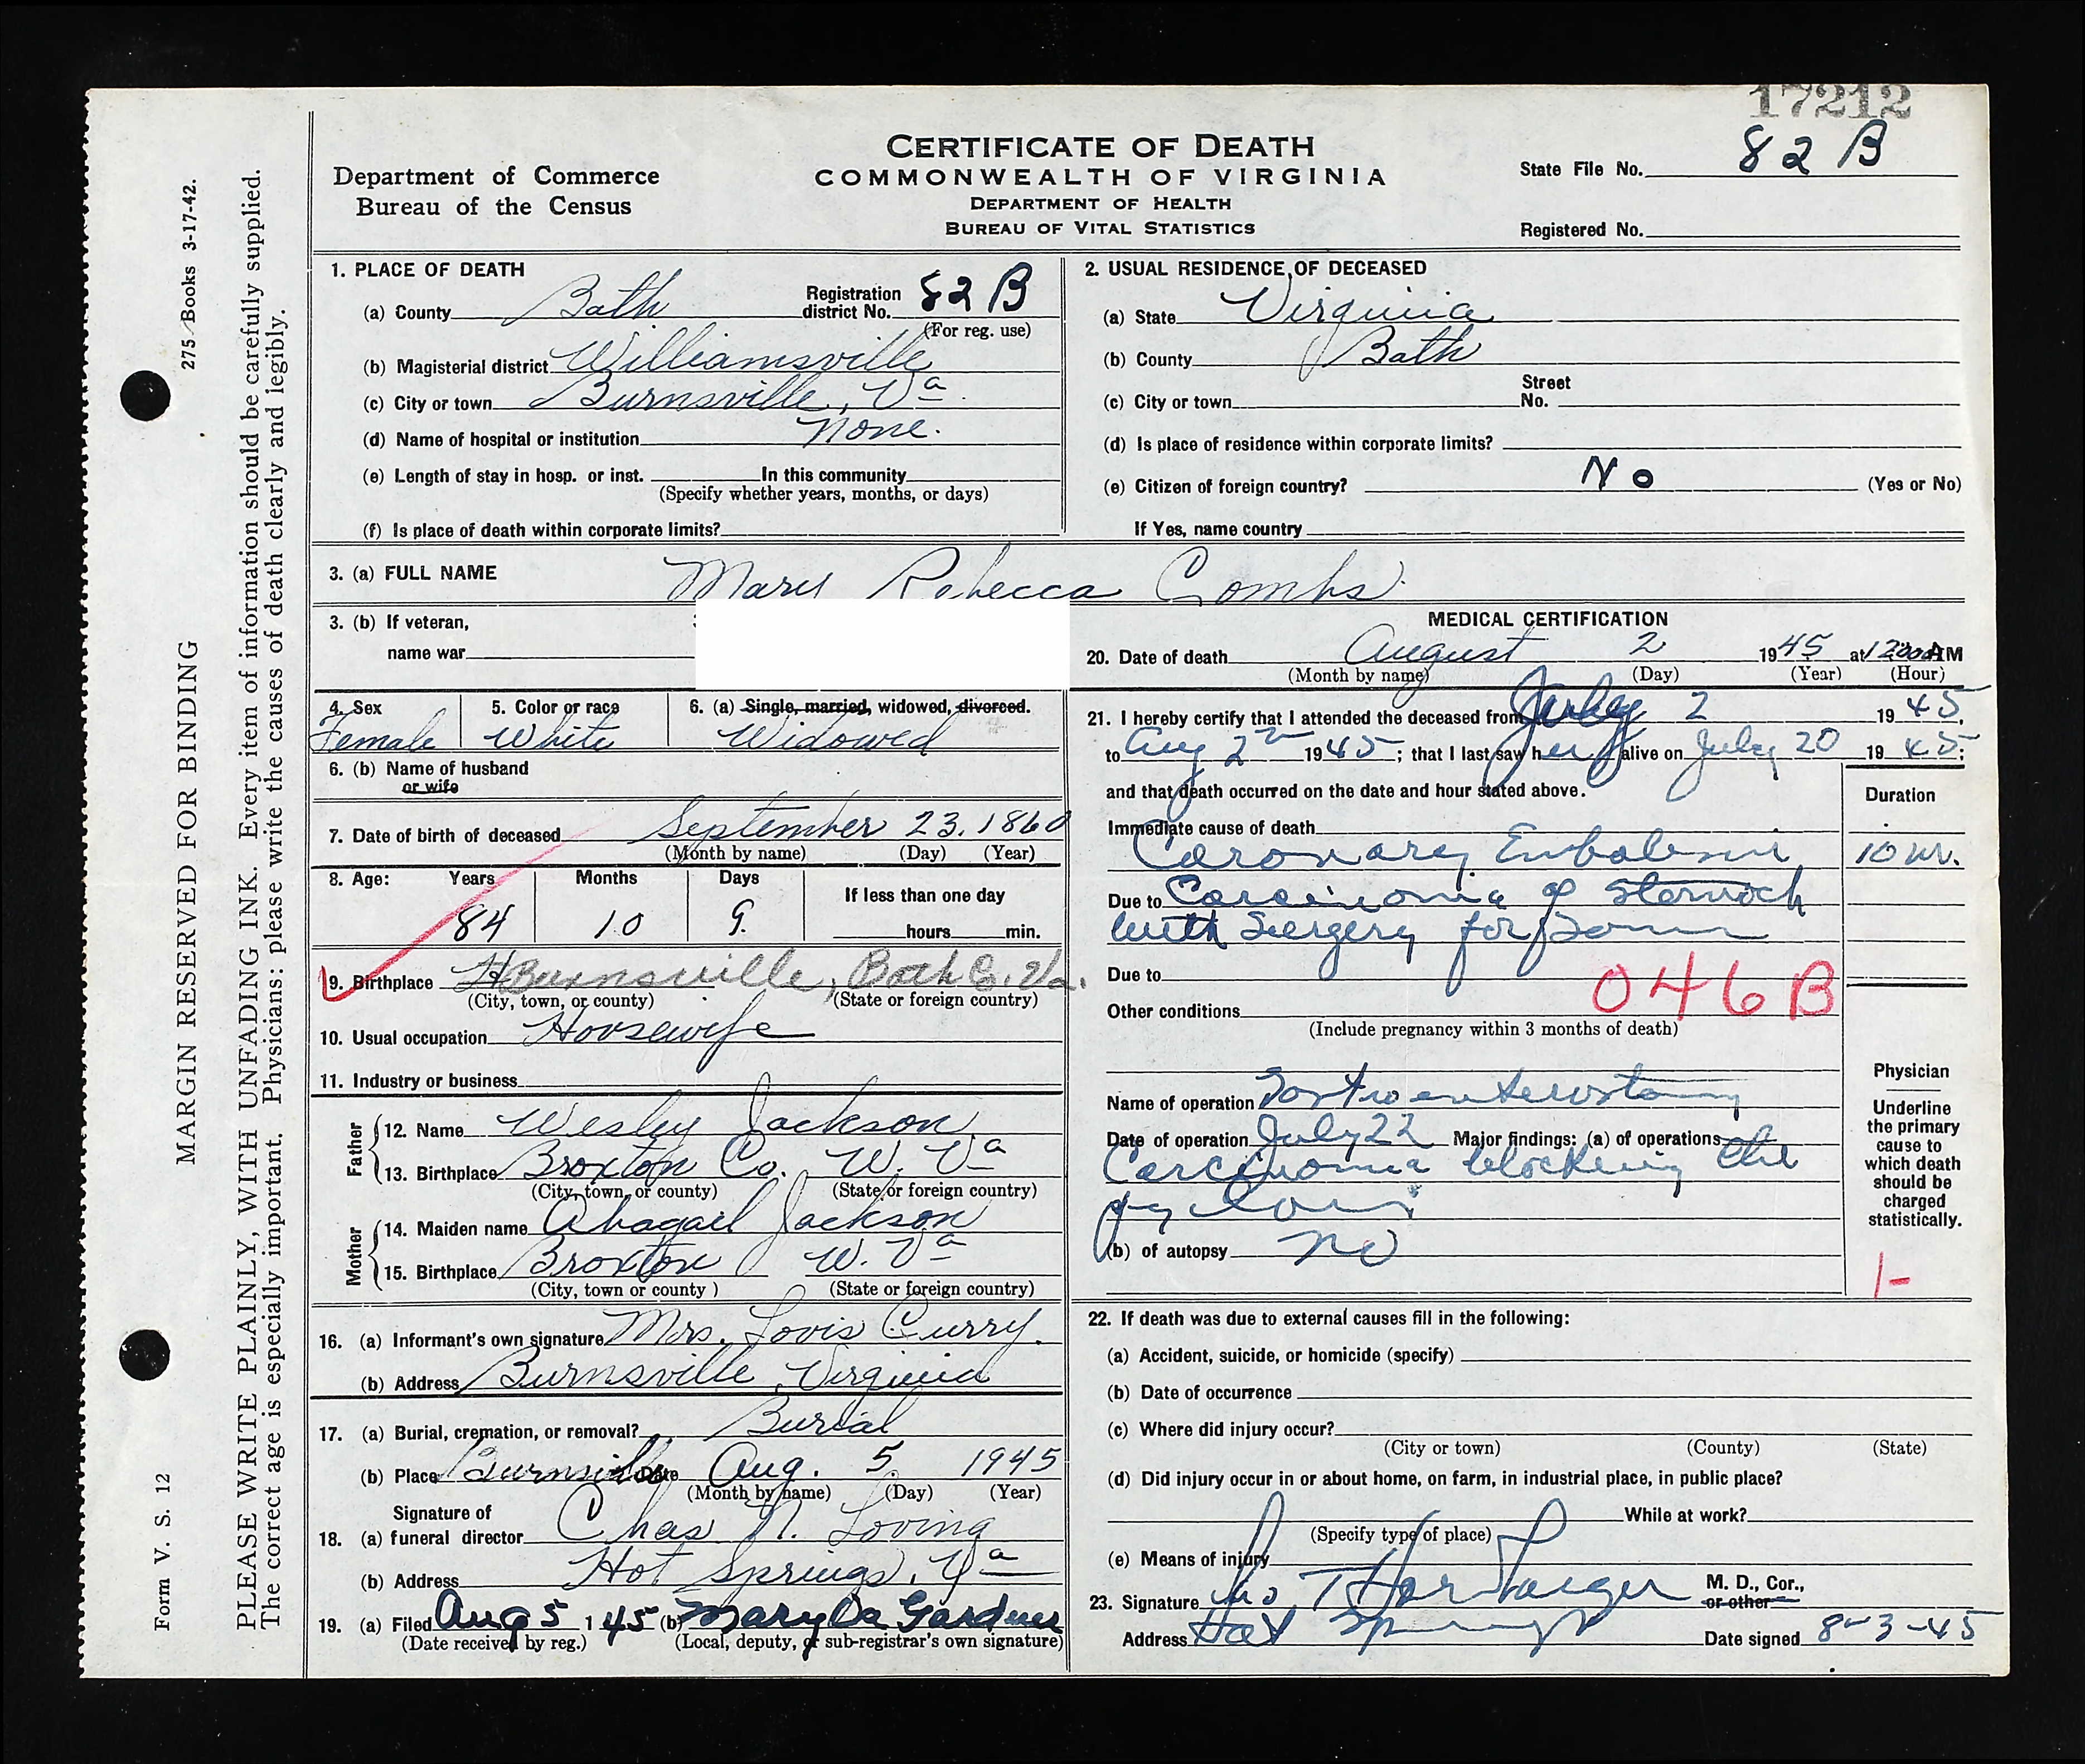 17212
CERTIFICATE OF DEATH
COMMONWEALTH OF VIRGINIA
DEPARTMENT OF HEALTH
BUREAU OF VITAL STATISTICS
Department of Commerce
Bureau of the Census
State File No. 82 B
Registered No.
275 Books 3-17-42.
MARGIN RESERVED FOR BINDING
Form V. S. 12
PLEASE WRITE PLAINLY, WITH UNFADING INK. Every item of information should be carefully supplied.
The correct age is especially important. Physicians: please write the causes of death clearly and legibly.
1. PLACE OF DEATH
(a) County Bath Registration district No. 82 B
(For reg. use)
(b) Magisterial district Williamsville
(c) City or town Burnsville, Va.
(d) Name of hospital or institution None.
(e) Length of stay in hosp. or inst. In this community
(Specify whether years, months, or days)
(f) Is place of death within corporate limits?
2. USUAL RESIDENCE OF DECEASED
(a) State Virginia
(b) County Bath
(c) City or town Street No.
(d) Is place of residence within corporate limits?
(e) Citizen of foreign country? No (Yes or No)
If Yes, name country
3. (a) FULL NAME Mary Rebecca Combs
3. (b) If veteran,
name war
4. Sex 5. Color or race 6. (a) Single, married, widowed, divorced.
Female White Widowed
6. (b) Name of husband
or wife
7. Date of birth of deceased September 23, 1860
(Month by name) (Day) (Year)
8. Age: Years Months Days If less than one day
84 10 9. hours min.
9. Birthplace Burnsville, Bath Co. Va.
(City, town, or county) (State or foreign country)
10. Usual occupation Housewife
11. Industry or business
Father
12. Name Wesley Jackson
13. Birthplace Broxton Co. W. Va
(City, town, or county) (State or foreign country)
Mother
14. Maiden name Abagail Jackson
15. Birthplace Broxton W. Va
(City, town or county ) (State or foreign country)
16. (a) Informant's own signature Mrs. Lovis Curry.
(b) Address Burnsville Virginia
17. (a) Burial, cremation, or removal? Burial
(b) Place Burnsville Date Aug. 5, 1945
(Month by name) (Day) (Year)
Signature of
18. (a) funeral director Chas N. Loving
(b) Address Hot Springs, Va
19. (a) Filed Aug 5 1945 (b) Mary Gardner
(Date received by reg.) (Local, deputy, or sub-registrar's own signature)
MEDICAL CERTIFICATION
20. Date of death August 2 1945 at 12:00 AM
(Month by name) (Day) (Year) (Hour)
21. I hereby certify that I attended the deceased from July 2 1945,
to Aug 2nd 1945; that I last saw her alive on July 20 1945;
and that death occurred on the date and hour stated above. Duration
Immediate cause of death
Coronary Embolism 10 hr.
Due to Carcinoma of stomach
with surgery for
Due to
046B
Other conditions
(Include pregnancy within 3 months of death)
Name of operation Gastroenterostomy
Date of operation July 22 Major findings: (a) of operations
Carcinoma blocking the
pylorus
(b) of autopsy no
Physician
Underline
the primary
cause to
which death
should be
charged
statistically.
1-
22. If death was due to external causes fill in the following:
(a) Accident, suicide, or homicide (specify)
(b) Date of occurrence
(c) Where did injury occur?
(City or town) (County) (State)
(d) Did injury occur in or about home, on farm, in industrial place, in public place?
While at work?
(Specify type of place)
(e) Means of injury
23. Signature M. D., Cor., or other
Address Hot Springs Date signed 8-3-45